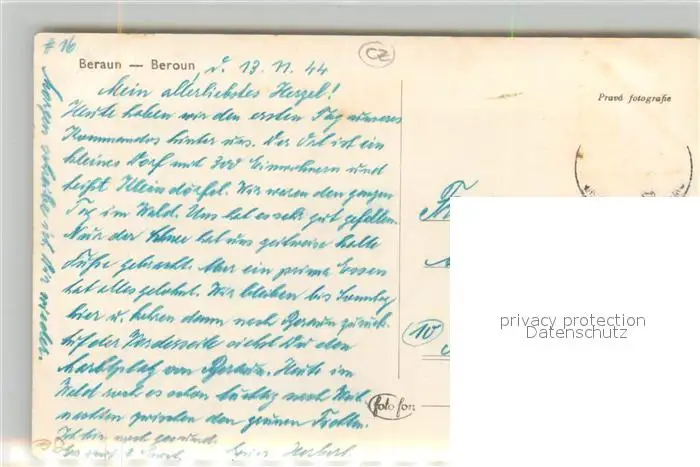 # 16
CZ
Beraun — Beroun
d. 13. 11. 44
Pravá fotografie
Mein allerliebstes Herzel!
Heute haben wir den ersten Tag unseres
Kommandos hinter uns. Der Ort ist ein
kleines Dorf mit 300 Einwohnern und
heißt Kleindörfel. Wir waren den ganzen
Tag im Wald. Uns hat es sehr gut gefallen.
Nur der Schnee hat uns zeitweise kalte
Füße gebracht. Aber ein prima Essen
hat alles gelohnt. Wir bleiben bis Samstag
hier u. kehren dann nach Beraun zurück.
Auf der Vorderseite siehst Du den
Marktplatz von Beraun. Heute im
Wald roch es schon tüchtig nach Weih-
nachten zwischen den grünen Fichten.
Ich bin noch gesund.
Dein Herbert
Morgen schreibe ich Dir wieder.
10
foto fon
privacy protection
Datenschutz